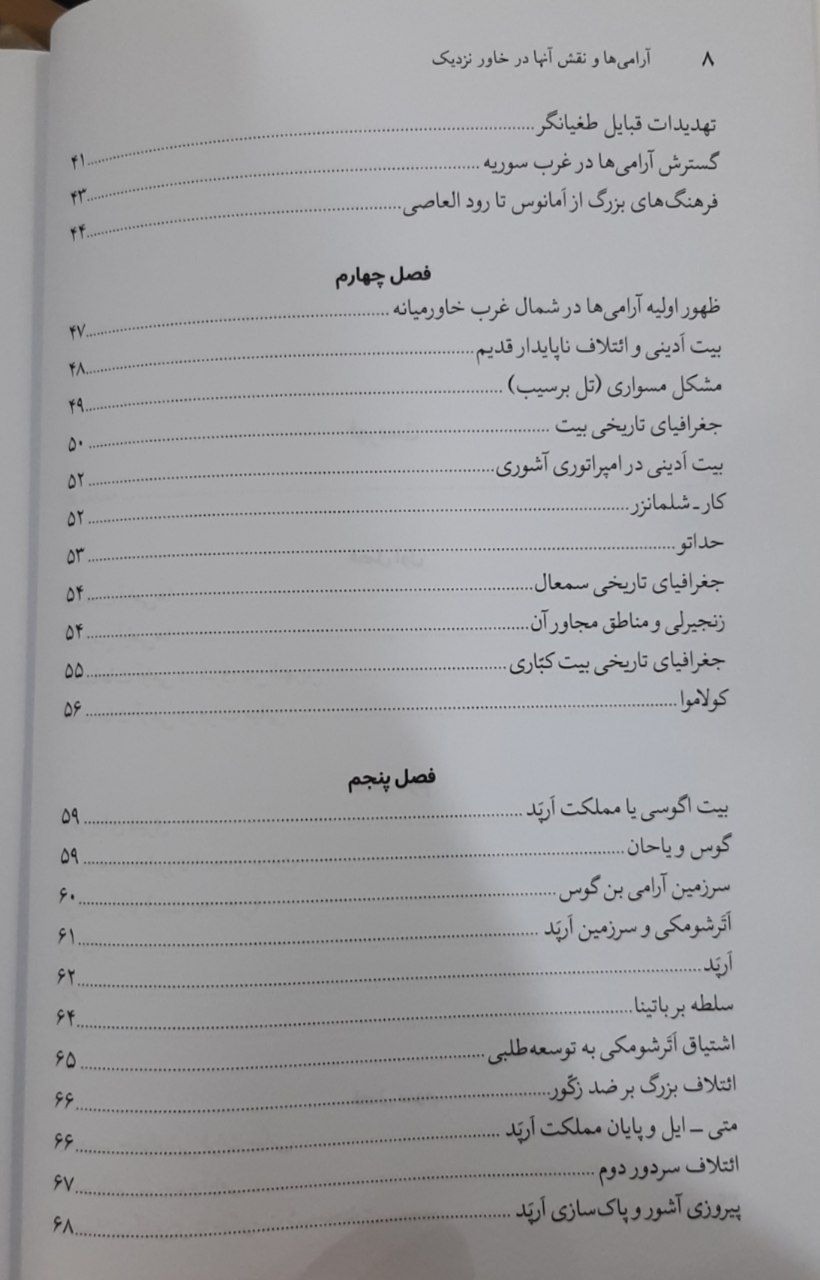 ۸ آرامی‌ها و نقش آنها در خاور نزدیک
تهدیدات قبایل طغیانگر ........ ۴۱
گسترش آرامی‌ها در غرب سوریه ........ ۴۳
فرهنگ‌های بزرگ از اَمانوس تا رود العاصی ........ ۴۴
فصل چهارم
ظهور اولیه آرامی‌ها در شمال غرب خاورمیانه ........ ۴۷
بیت اَدینی و ائتلاف ناپایدار قدیم ........ ۴۸
مشکل مسواری (تل برسیب) ........ ۴۹
جغرافیای تاریخی بیت ........ ۵۰
بیت اَدینی در امپراتوری آشوری ........ ۵۲
کار ـ شلمانزر ........ ۵۲
حداتو ........ ۵۳
جغرافیای تاریخی سمعال ........ ۵۴
زنجیرلی و مناطق مجاور آن ........ ۵۴
جغرافیای تاریخی بیت کبّاری ........ ۵۵
کولاموا ........ ۵۶
فصل پنجم
بیت اگوسی یا مملکت اَرپَد ........ ۵۹
گوس و یاحان ........ ۵۹
سرزمین آرامی بن گوس ........ ۶۰
اَتَرشومکی و سرزمین اَرپَد ........ ۶۱
اَرپَد ........ ۶۲
سلطه بر باتینا ........ ۶۴
اشتیاق اَتَرشومکی به توسعه‌طلبی ........ ۶۵
ائتلاف بزرگ بر ضد زکّور ........ ۶۶
متی ــ ایل و پایان مملکت اَرپَد ........ ۶۶
ائتلاف سردور دوم ........ ۶۷
پیروزی آشور و پاک‌سازی اَرپَد ........ ۶۸